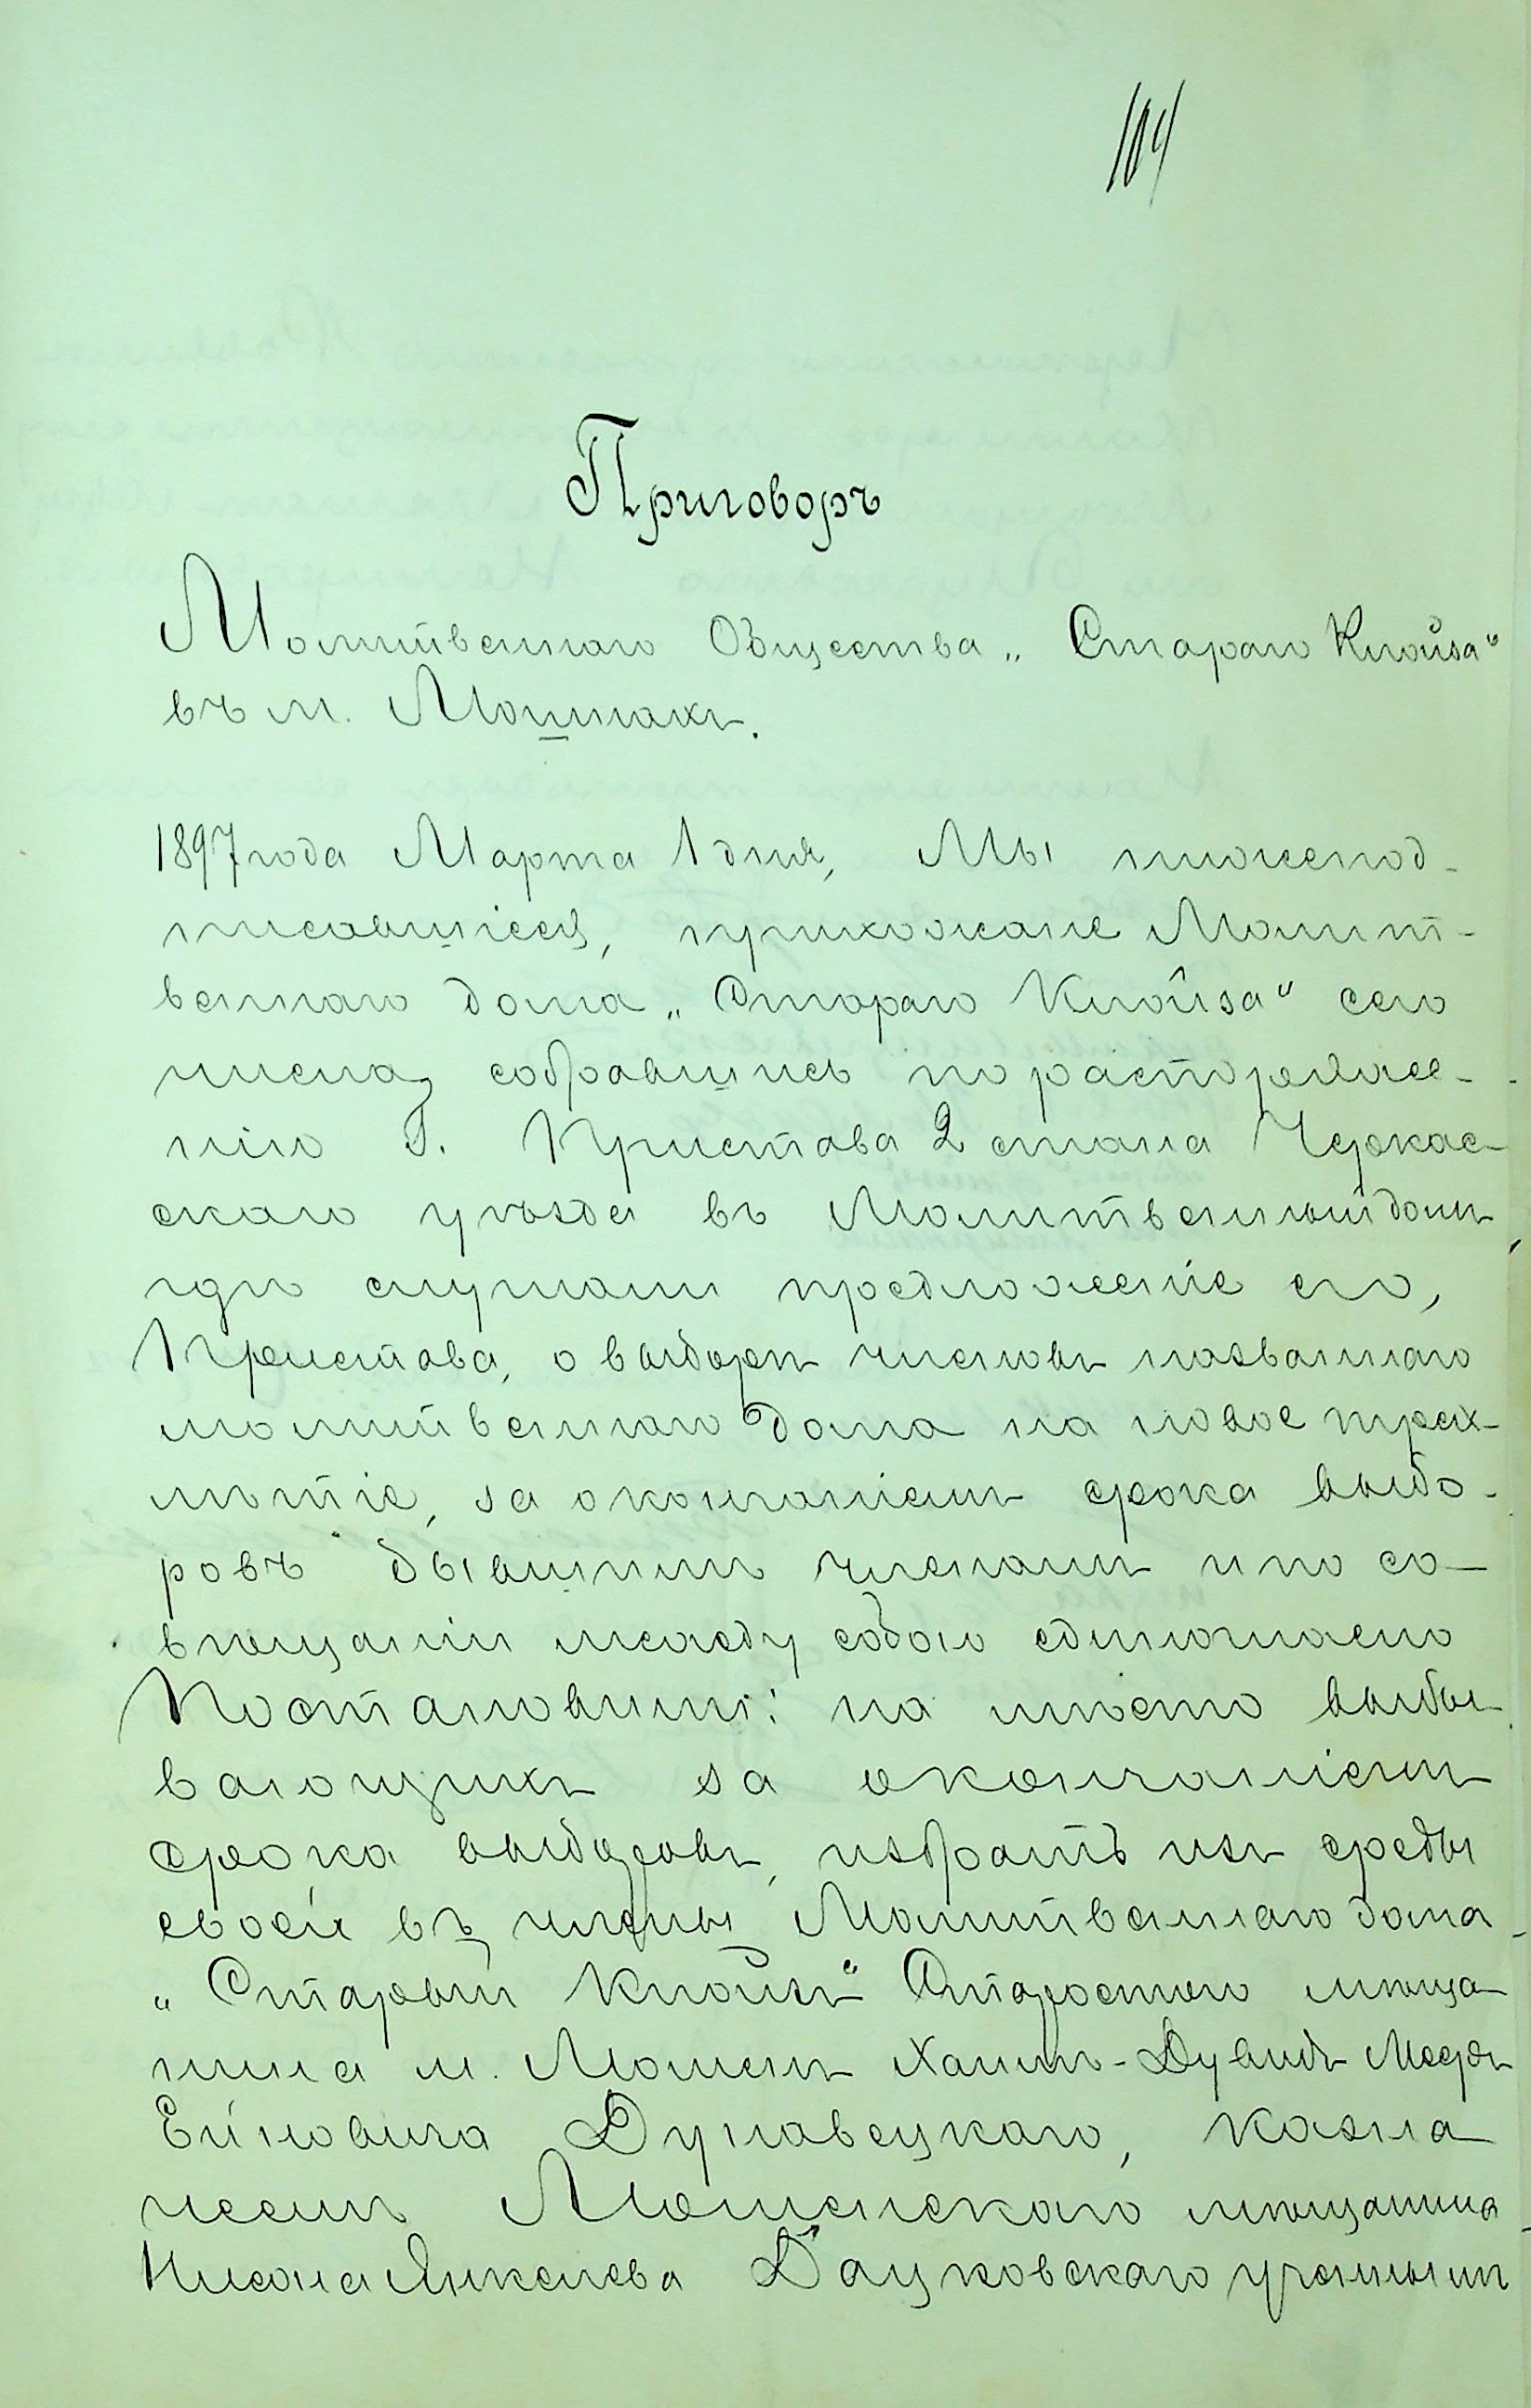 104
Приговоръ
Молитвеннаго Общества „Стараго Клойза“
въ м. Мошнахъ.
1897 года Марта 1 дня, Мы нижепод-
писавшіеся, прихожане Молит-
веннаго дома „Стараго Клойза“ сего
числа, собравшись по распоряже-
нію Г. Пристава 2 стана Черкас-
скаго уѣзда въ Молитвенный домъ,
гдѣ слушали предложеніе его,
Пристава, о выборѣ членовъ названнаго
молитвеннаго дома на новое трех-
лѣтіе, за окончаніемъ срока выбо-
ровъ бывшимъ членамъ и по со-
вѣщаніи между собою единогласно
Постановили: на мѣсто выбы-
вающихъ за окончаніемъ
срока выборовъ, избрать изъ среды
своей въ члены Молитвеннаго дома
„Старый Клойзъ“ Старостою мѣща-
нина м. Мошенъ Хаимъ-Дувидъ
Дунавецкаго, казна
чеемъ Мошенскаго мѣщанина
Нисона Янкелева Дацковскаго ученымъ